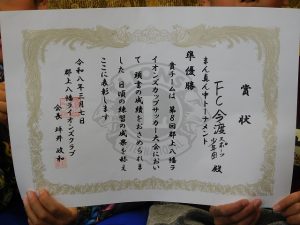 賞状
FC今渡スポーツ少年団 殿
まん真ん中トーナメント
準優勝
貴チームは 第8回郡上八幡ラ
イオンズカップサッカー大会におい
て 頭書の成績をおさめられま
した 日頃の練習の成果を称え
ここに表彰します
令和八年三月七日
郡上八幡ライオンズクラブ
会長 坪井政和